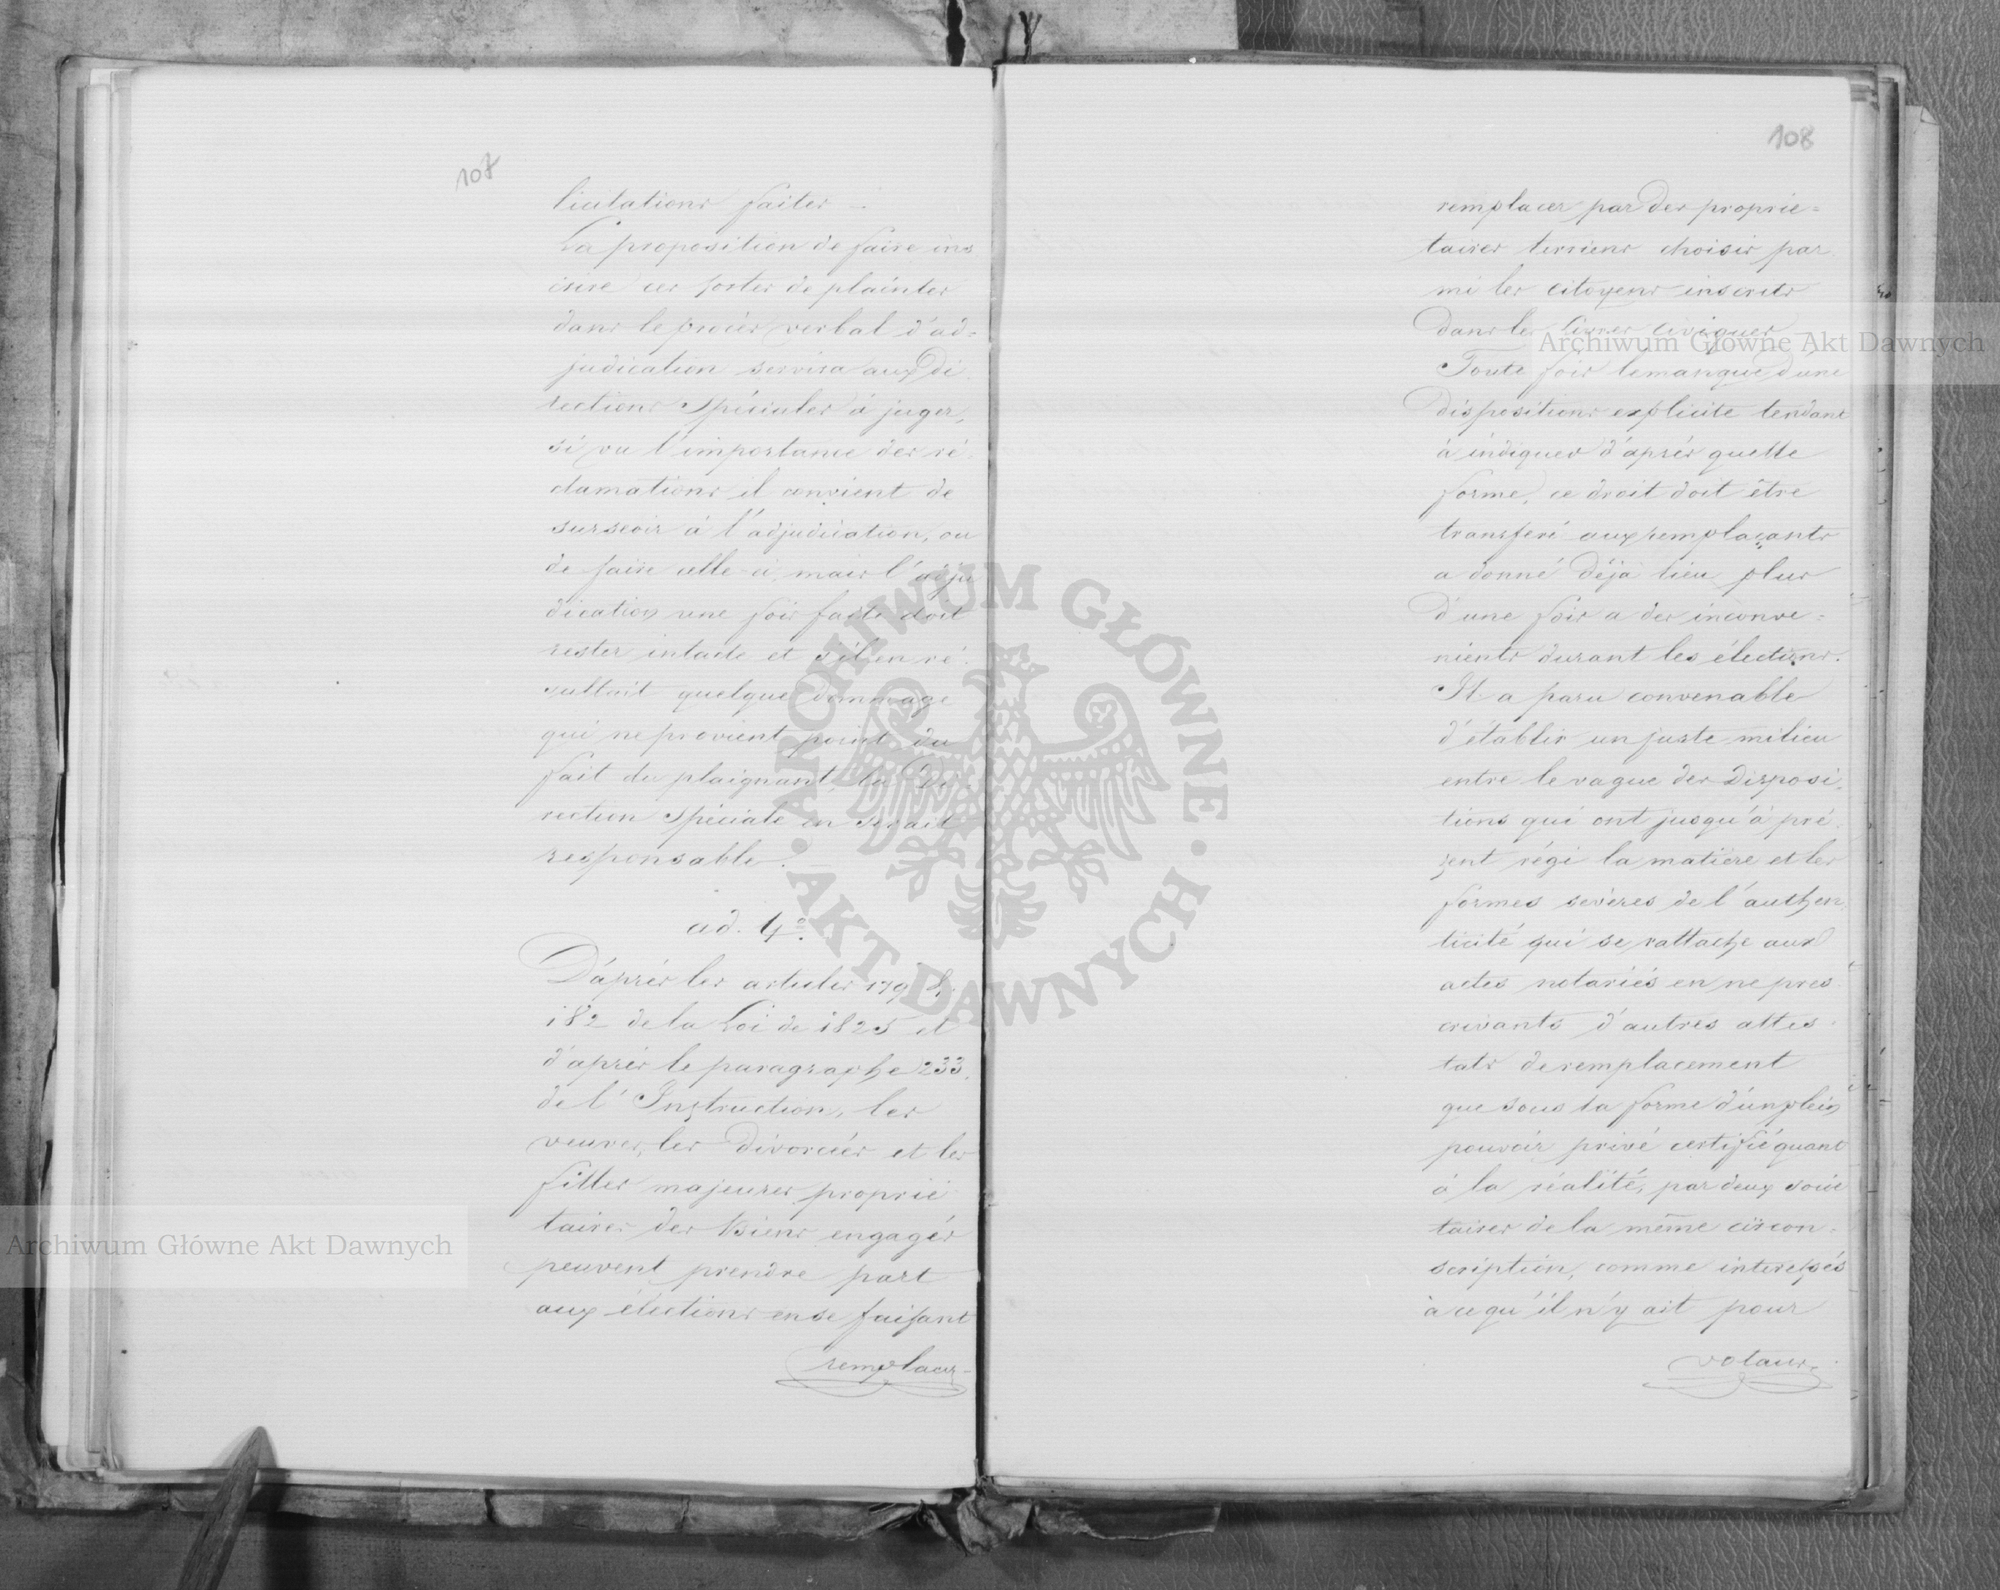 107
licitations faites. —
La proposition de faire ins
crire ces sortes de plaintes
dans le procès verbal d'ad=
judication servira aux Di
rections Spéciales à juger,
si vu l'importance des ré
clamations il convient de
surseoir à l'adjudication, ou
de faire celle-ci, mais l'adju
dication une fois faite doit
rester intacte et s'il en ré
sultait quelque dommage
qui ne provient point du
fait du plaignant, la Di
rection Spéciale en serait
responsable. —
ad. 4º.
D'après les articles 179 &
182 de la Loi de 1825 et
d'après le paragraphe 233.
de l'Instruction, les
veuves, les divorcées et les
filles majeures proprié
taires des Biens engagés
peuvent prendre part
aux élections en se faisant
remplacer
108
remplacer par des proprié=
taires terriens choisis par
mi les citoyens inscrits
dans les livres civiques
Toute fois le manque d'une
disposition explicite tendant
à indiquer d'après quelle
forme, ce droit doit être
transféré aux remplaçants
a donné déjà lieu plus
d'une fois a des inconve=
nients durant les élections.
Il a paru convenable
d'établir un juste milieu
entre le vague des disposi
tions qui ont jusqu'à pré
sent régi la matière et les
formes sévères de l'authen
ticité qui se rattache aux
actes notariés en ne pres
crivants d'autres attes
tats de remplacement
que sous la forme d'un plein
pouvoir privé certifié quant
à la réalité, par deux socié
taires de la même circon=
scription, comme interessés
à ce qu'il n'y ait pour
votans
Archiwum Główne Akt Dawnych
Archiwum Główne Akt Dawnych
ARCHIWUM GŁÓWNE · AKT DAWNYCH ·